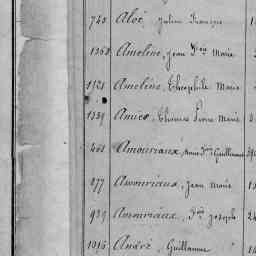 745 Aloé, Julien François 1
1368 Ameline, Jean Fçois Marie
1121 Ameline, Théophile Marie
1339 Amice, Thomas Pierre Marie
461 Amouriaux, Guillaume
877 Amouriaux, Jean Marie
939 Amouriaux, Joseph 2
1016 André, Guillaume 1